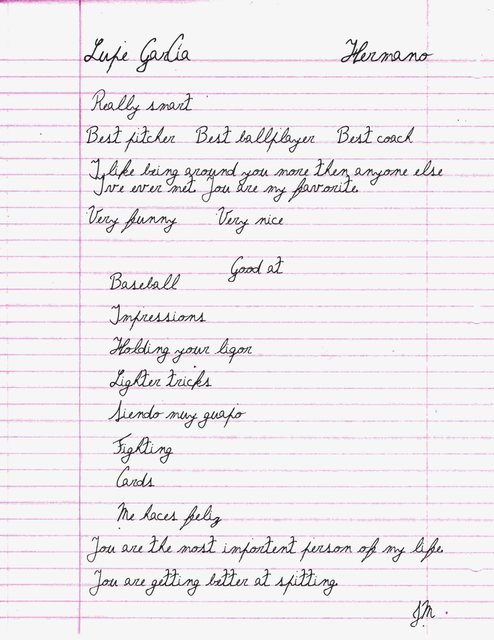 Lupe García Hermano
Really smart
Best pitcher Best ballplayer Best coach
I like being around you more then anyone else
I've ever met. You are my favorite.
Very funny Very nice
Good at
Baseball
Impressions
Holding your liqor
Lighter tricks
Siendo muy guapo
Fighting
Cards
Me haces feliz
You are the most importent person of my life.
You are getting better at spitting.
JM